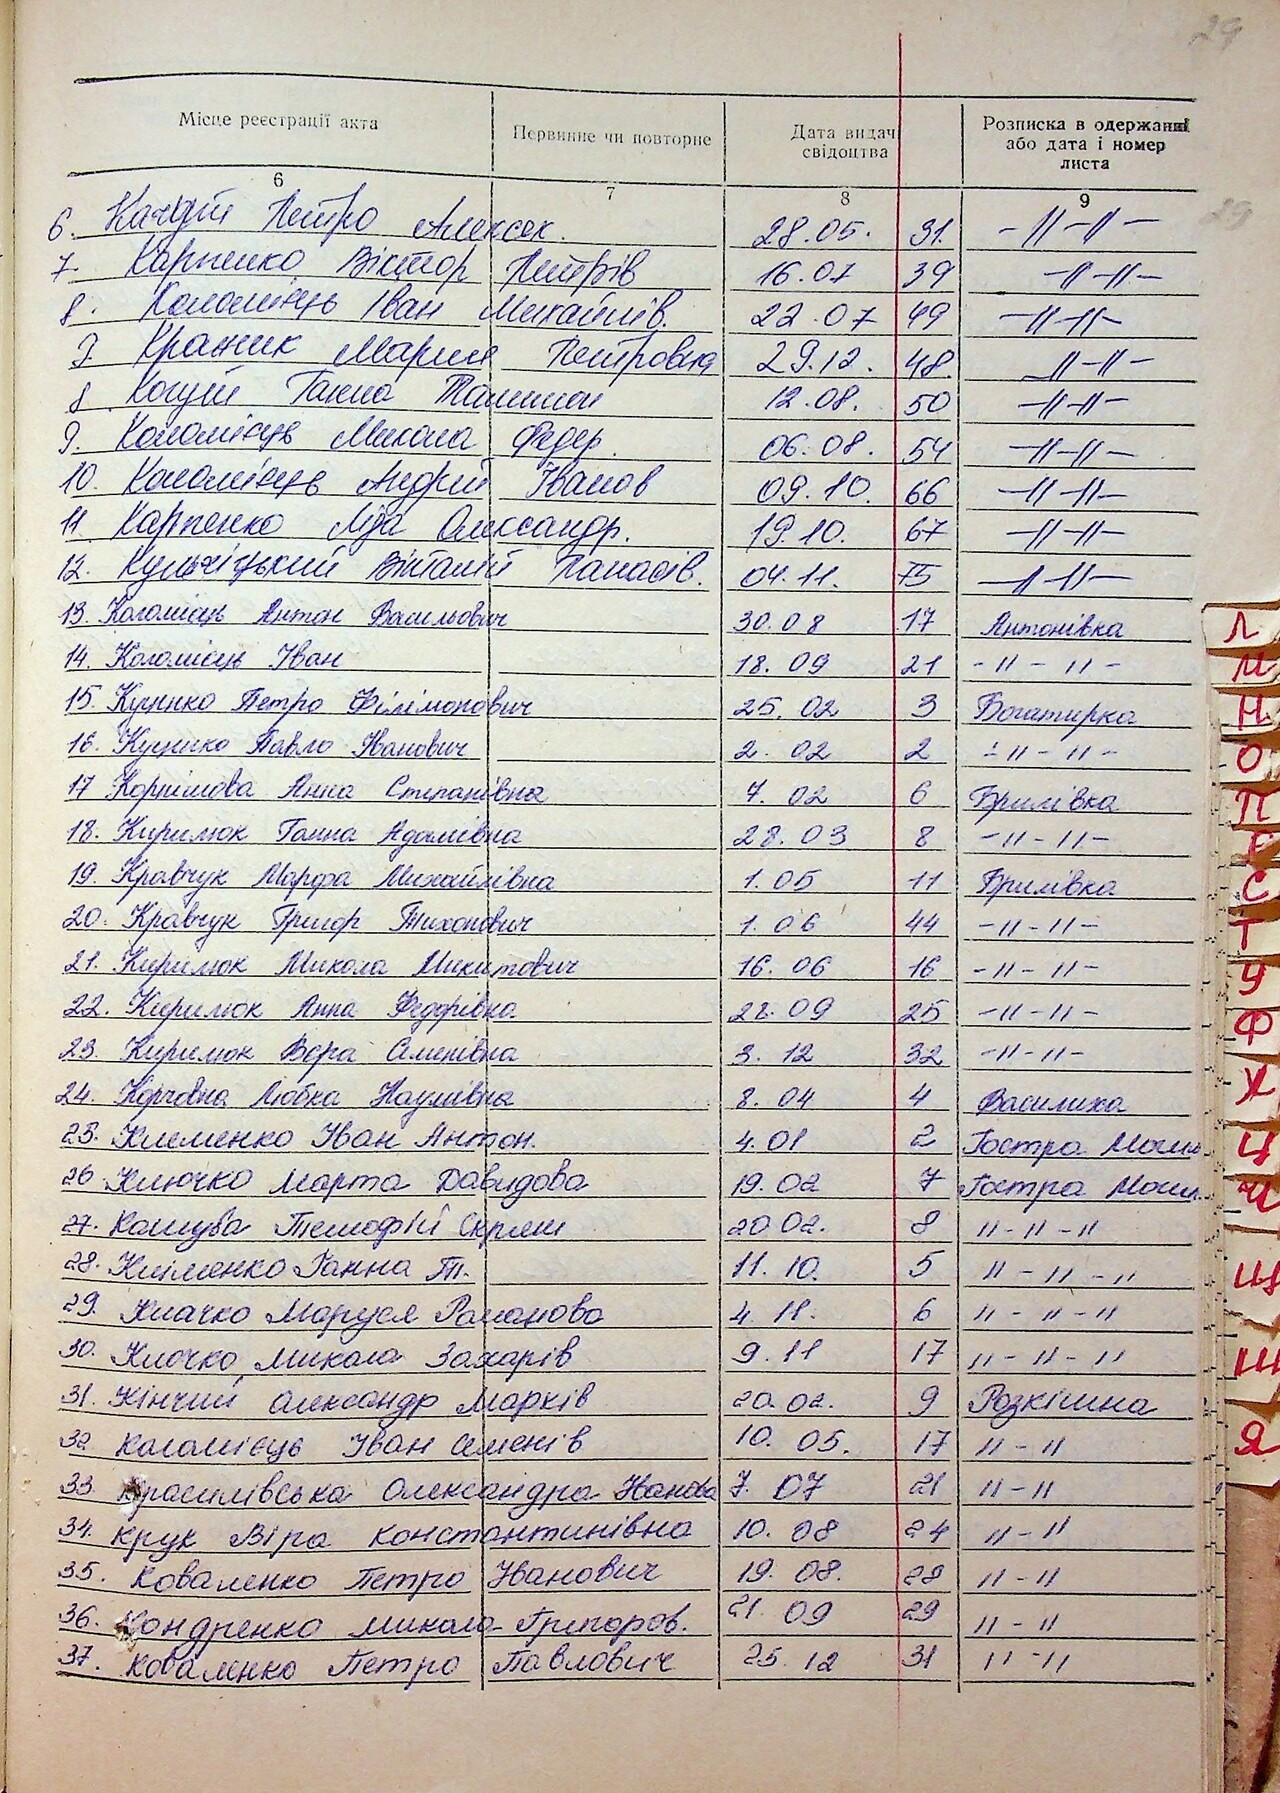 29
Місце реєстрації акта Первинне чи повторне Дата видач свідоцтва Розписка в одержанні або дата і номер листа
6 7 8 9
29
6. Петро Алексек. 28.05. 31. -"-"-
7. Карпенко Віктор Петрів 16.07 39 -"-"-
8. Коломієць Іван Михайлів. 22.07 49 -"-"-
9. Мария Петровна 29.12. 48. -"-"-
8 Ганна 12.08. 50 -"-"-
9. Коломієць Микола Федер. 06.08. 54 -"-"-
10. Коломієць Андрий Іванов 09.10. 66 -"-"-
11 Карпенко Ліда Олександр. 19.10. 67 -"-"-
12. Кульчіцький Віталий Панасів. 04.11. 75 -"-"-
13. Коломієць Антон Васильович 30.08 17 Антонівка
14. Коломієць Іван 18.09 21 -"-"-
15. Куцико Петро Філімонович 25.02 3 Богатирка
16. Куцико Павло Іванович 2.02 2 -"-"-
17 Анна Степанівна 7.02 6 Брилівка
18. Кирилюк Ганна Адамівна 28.03 8 -"-"-
19. Кравчук Марфа Михайлівна 1.05 11 Брилівка
20. Кравчук Григор Тихонович 1.06 44 -"-"-
21. Кирилюк Микола Микитович 16.06 16 -"-"-
22. Кирилюк Анна Федорівна 22.09 25 -"-"-
23. Кирилюк Вера Семенівна 3.12 32 -"-"-
24. Любка Наумівна 8.04 4 Василиха
25. Клеменко Іван Антон. 4.01 2 Гостра Могил
26 Клочко Марта Давидова 19.02 7 Гостра Могил
27. Кашуба Тимофій 20.02. 8 "-"-"
28. Кліменко Ганна Т. 11.10. 5 "-"-"
29. Клачко Маруся Романова 4.11. 6 "-"-"
30. Клочко Микола Захарів 9.11 17 "-"-"
31. Кінчий Олександр Марків 20.02. 9 Розкішна
32 Коломієць Іван Семенів 10.05. 17 "-"
33. Красилівська Олександра Іванова 7.07 21 "-"
34. Крук Віра Константинівна 10.08 24 "-"
35. Коваленко Петро Іванович 19.08. 28 "-"
36. Кондренко Микола Григоров. 21.09 29 "-"
37. Коваленко Петро Павлович 25.12 31 "-"
Л
М
Н
О
П
Р
С
Т
У
Ф
Х
Ц
Ч
Щ
Ш
Я